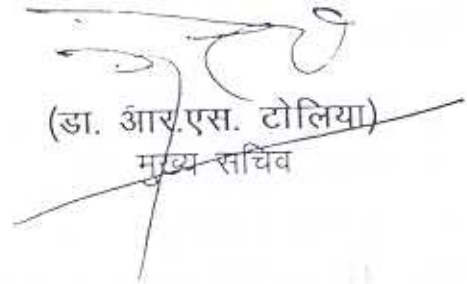 (डा. आर.एस. टोलिया)
मुख्य सचिव